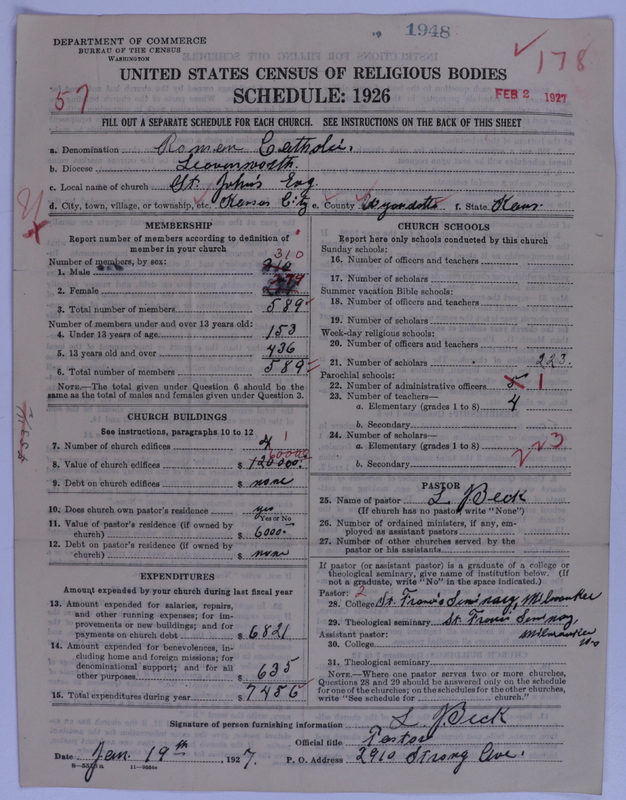 1948
DEPARTMENT OF COMMERCE
BUREAU OF THE CENSUS
WASHINGTON
178
UNITED STATES CENSUS OF RELIGIOUS BODIES
57
SCHEDULE: 1926
FEB 2 1927
FILL OUT A SEPARATE SCHEDULE FOR EACH CHURCH. SEE INSTRUCTIONS ON THE BACK OF THIS SHEET
a. Denomination Roman Catholic.
b. Diocese Leavenworth.
c. Local name of church St. John's Evg.
d. City, town, village, or township, etc. Kansas City e. County Wyandotte f. State Kans.
MEMBERSHIP
Report number of members according to definition of
member in your church
Number of members, by sex:
1. Male 310
2. Female 279
3. Total number of members 589
Number of members under and over 13 years old:
4. Under 13 years of age 153
5. 13 years old and over 436
6. Total number of members 589
NOTE.—The total given under Question 6 should be
same as the total of males and females given under Question 3.
CHURCH BUILDINGS
See instructions, paragraphs 10 to 12
7. Number of church edifices 1
8. Value of church edifices $ 120000. 60000
9. Debt on church edifices $ none
10. Does church own pastor's residence yes
Yes or No
11. Value of pastor's residence (if owned by
church) $ 6000.
12. Debt on pastor's residence (if owned by
church) $ none
EXPENDITURES
Amount expended by your church during last fiscal year
13. Amount expended for salaries, repairs,
and other running expenses; for im-
provements or new buildings; and for
payments on church debt $ 6821
14. Amount expended for benevolences, in-
cluding home and foreign missions; for
denominational support; and for all
other purposes $ 635
15. Total expenditures during year $ 7456
CHURCH SCHOOLS
Report here only schools conducted by this church
Sunday schools:
16. Number of officers and teachers
17. Number of scholars
Summer vacation Bible schools:
18. Number of officers and teachers
19. Number of scholars
Week-day religious schools:
20. Number of officers and teachers
21. Number of scholars 223.
Parochial schools:
22. Number of administrative officers 5 1
23. Number of teachers—
a. Elementary (grades 1 to 8) 4
b. Secondary
24. Number of scholars—
a. Elementary (grades 1 to 8) 223
b. Secondary
PASTOR
25. Name of pastor L. J. Beck
(If church has no pastor, write "None")
26. Number of ordained ministers, if any, em-
ployed as assistant pastors
27. Number of other churches served by the
pastor or his assistants
If pastor (or assistant pastor) is a graduate of a college or
theological seminary, give name of institution below. (If
not a graduate, write "No" in the space indicated.)
Pastor: 2
28. College St. Francis Seminary, Milwaukee
29. Theological seminary St. Francis Seminary,
Assistant pastor: Milwaukee
30. College Wis
31. Theological seminary
NOTE.—Where one pastor serves two or more churches,
Questions 28 and 29 should be answered only on the schedule
for one of the churches; on the schedules for the other churches,
write "See schedule for church."
Signature of person furnishing information L. J. Beck
Official title Pastor
Date Jan. 19th, 1927. P. O. Address 2910 Strong Ave.